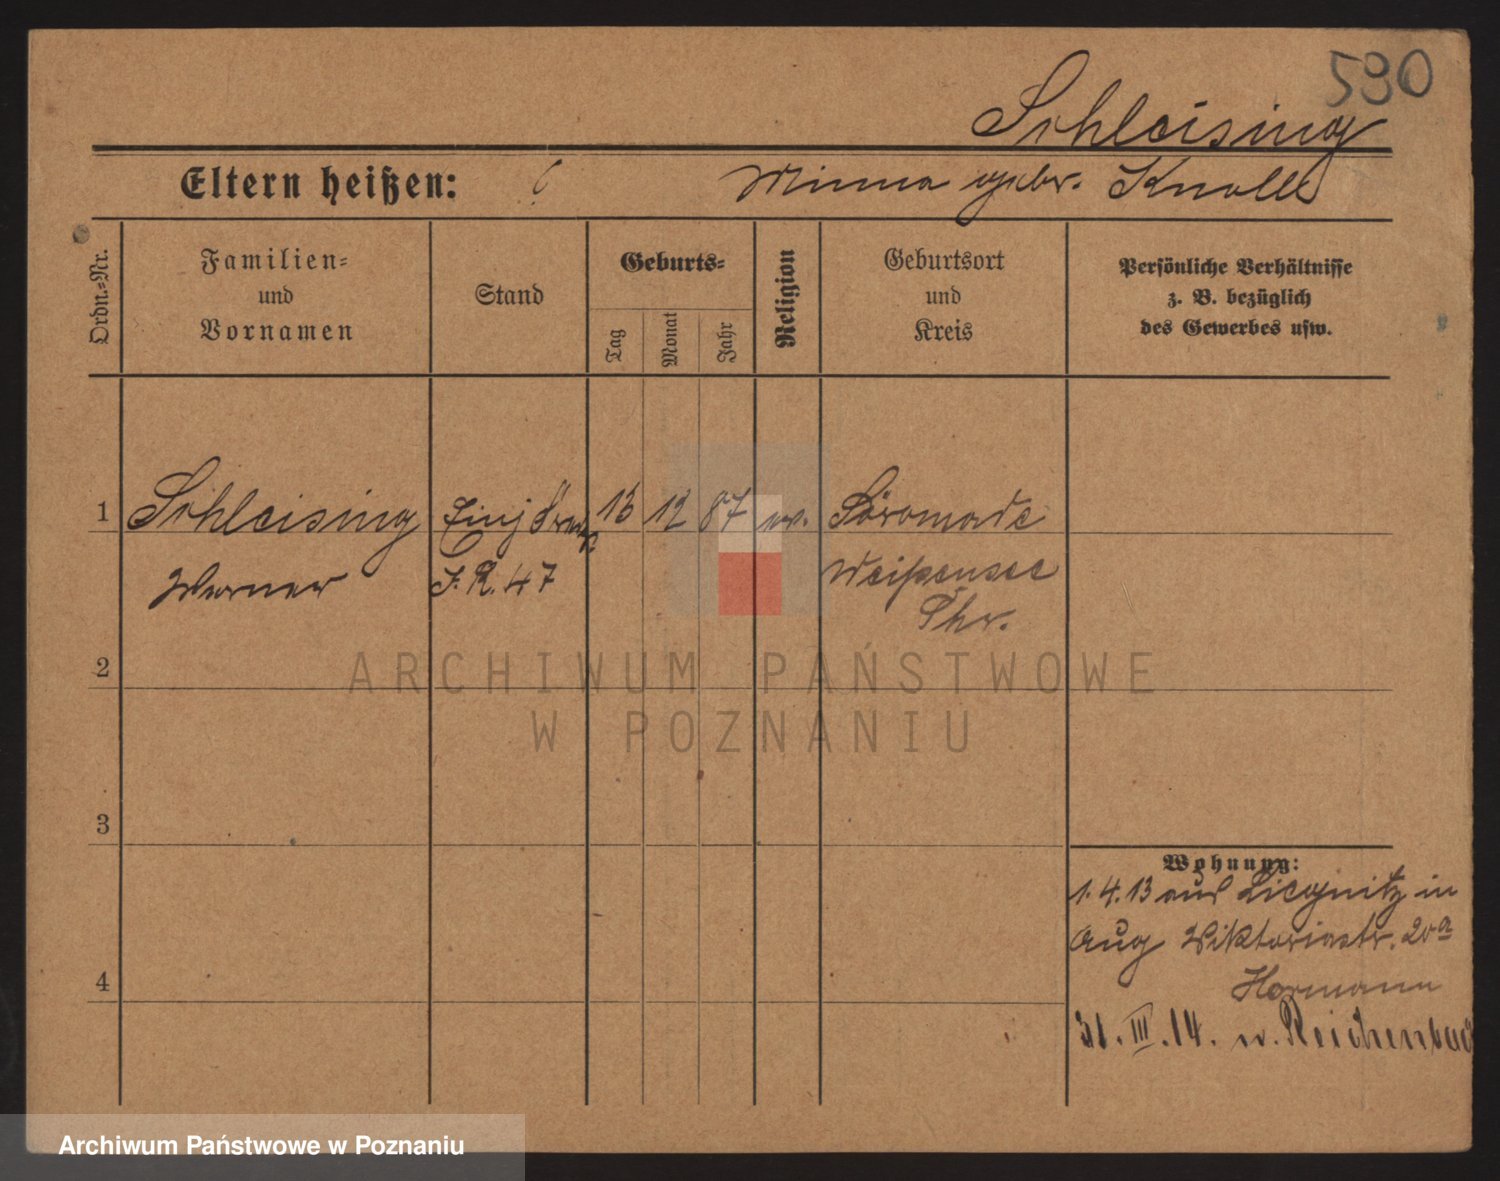 590
Schleising
Eltern heißen: Minna gebr. Knolle
Ordn.=Nr.
Familien=
und
Vornamen
Stand
Geburts=
Tag
Monat
Jahr
Religion
Geburtsort
und
Kreis
Persönliche Verhältnisse
z. B. bezüglich
des Gewerbes usw.
1 Schleising Einj 13 12 87 ev.
Werner J. R. 47 Weißensee
Thr.
2
3
4
Wohnung:
1.4.13 aus Liegnitz in
Aug Viktoriastr. 20a
Hormann
31. III. 14. n. Reichenbach
ARCHIWUM PAŃSTWOWE
W POZNANIU
Archiwum Państwowe w Poznaniu